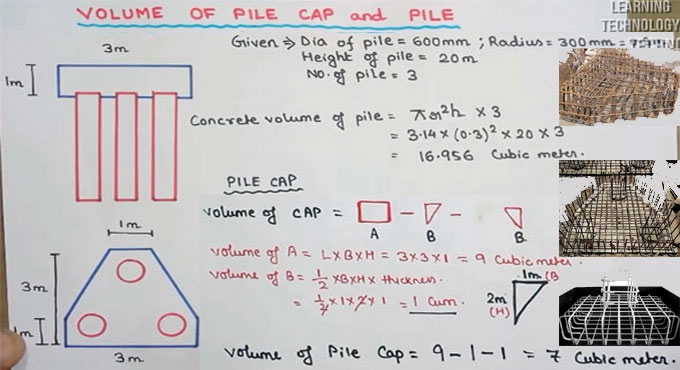 LEARNING
TECHNOLOGY
VOLUME OF PILE CAP and PILE
3m
1m
Given ⇒ Dia of pile = 600mm ; Radius = 300mm =
Height of pile = 20m
No. of pile = 3
Concrete volume of pile = πr²h × 3
= 3.14 × (0.3)² × 20 × 3
= 16.956 Cubic meter.
PILE CAP
Volume of CAP = □ - ▽ - ▽
A B B
1m
Volume of A = L×B×H = 3×3×1 = 9 Cubic meter.
Volume of B = 1/2 ×B×H× thickness.
= 1/2 ×1×2×1 = 1 Cum.
1m (B
2m
(H)
3m
1m
3m
Volume of Pile Cap = 9-1-1 = 7 Cubic meter.